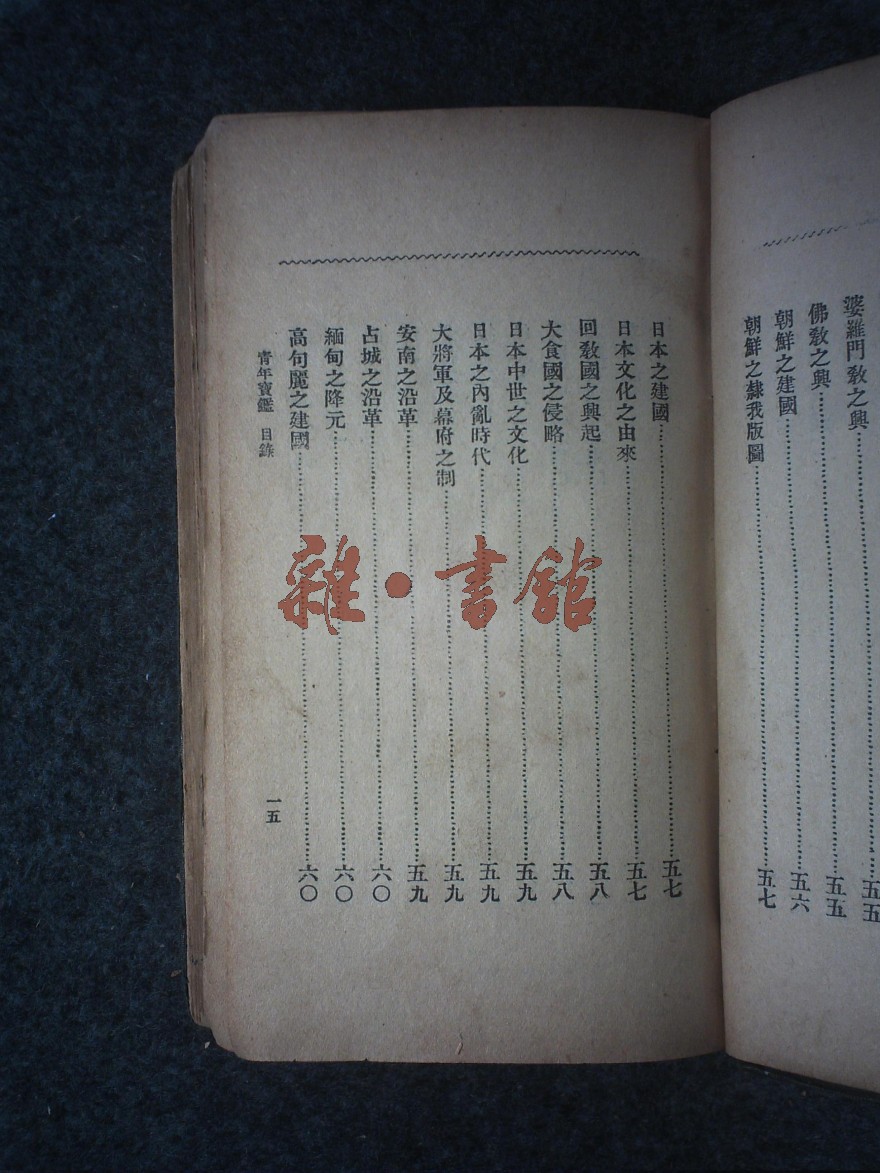 婆羅門教之興……五五
佛教之興……五五
朝鮮之建國……五六
朝鮮之隸我版圖……五七
日本之建國……五七
日本文化之由來……五七
回教國之興起……五八
大食國之侵略……五八
日本中世之文化……五九
日本之內亂時代……五九
大將軍及幕府之制……五九
安南之沿革……五九
占城之沿革……六〇
緬甸之降元……六〇
高句麗之建國……六〇
青年寶鑑 目錄 一五
雜·書館